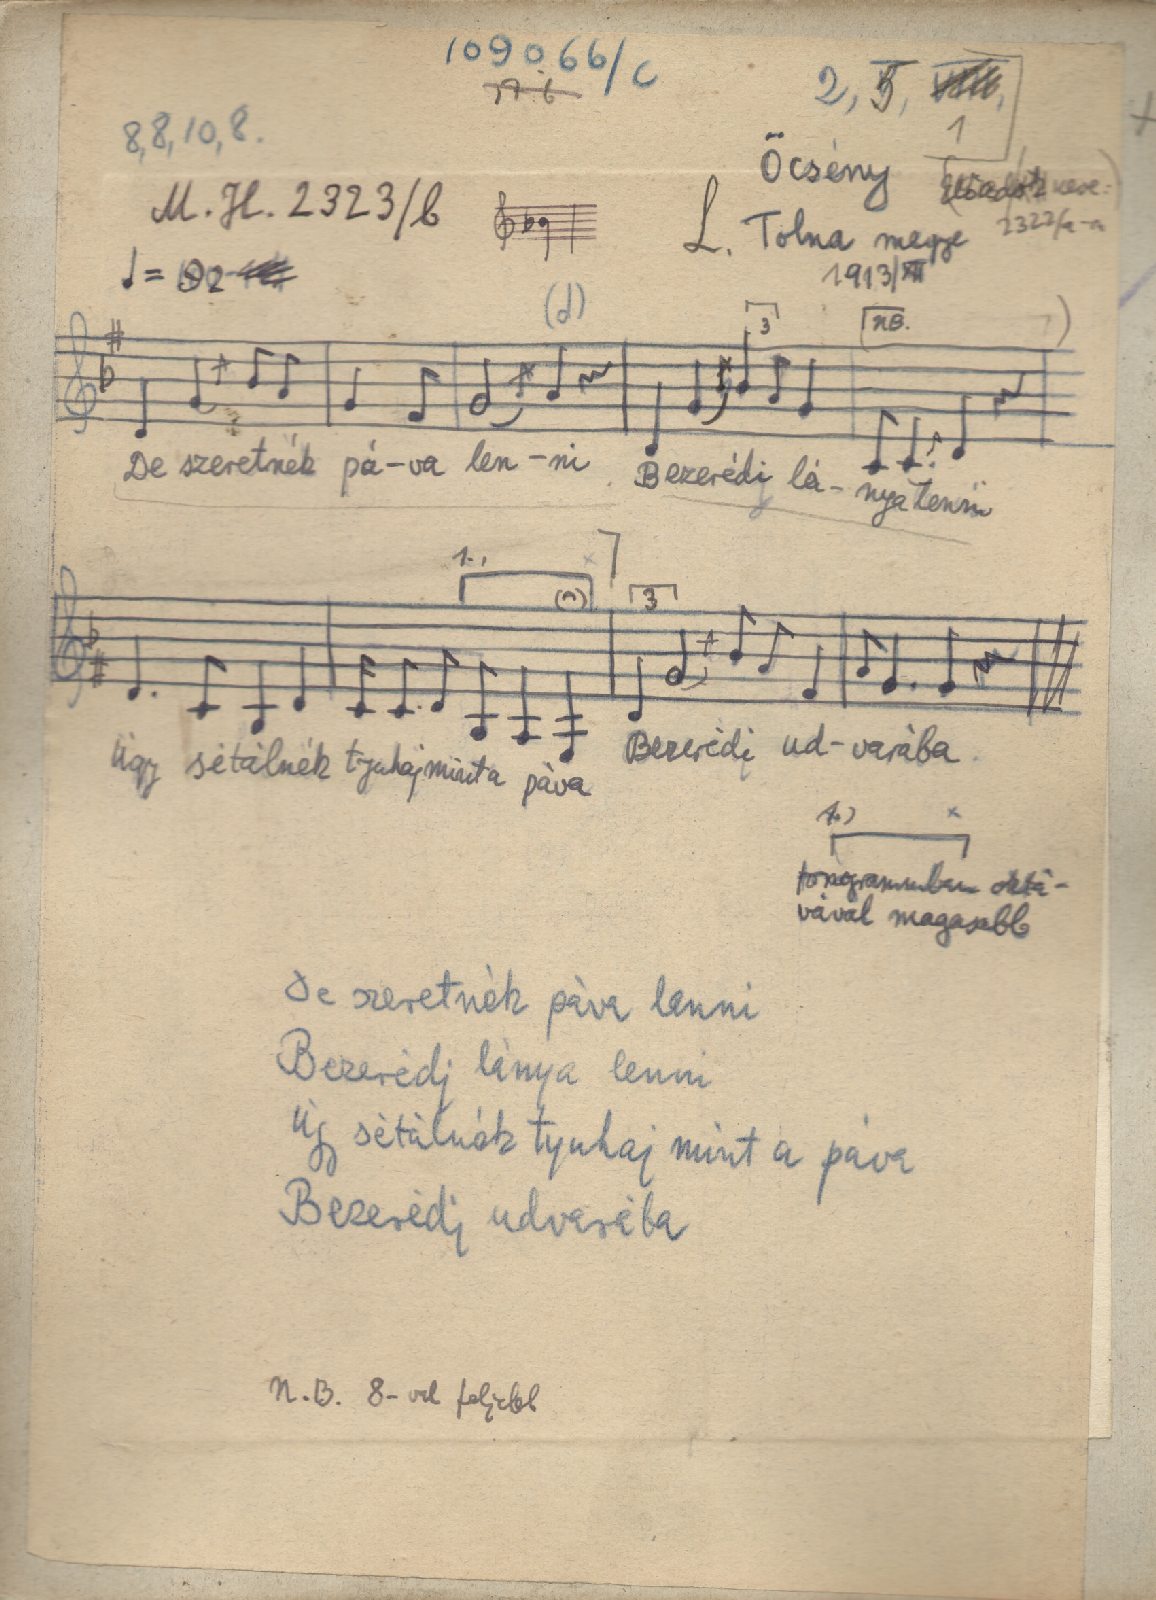 109066/c
2, 5,
1
8,8,10,8.
Őcsény
M.H. 2323/b
L. Tolna megye
2322/a-
♩= 92
1913/XII
(d)
3
NB.
De szeretnék pá-va len-ni Bezerédj lá-nya lenni
1.,
3
Úgy sétálnék tyuhaj mint a páva Bezerédj ud-varába
1.)
fonogrammban oktá-
vával magasabb
De szeretnék páva lenni
Bezerédj lánya lenni
Úgy sétálnék tyuhaj mint a páva
Bezerédj udvarába
N.B. 8-val feljebb